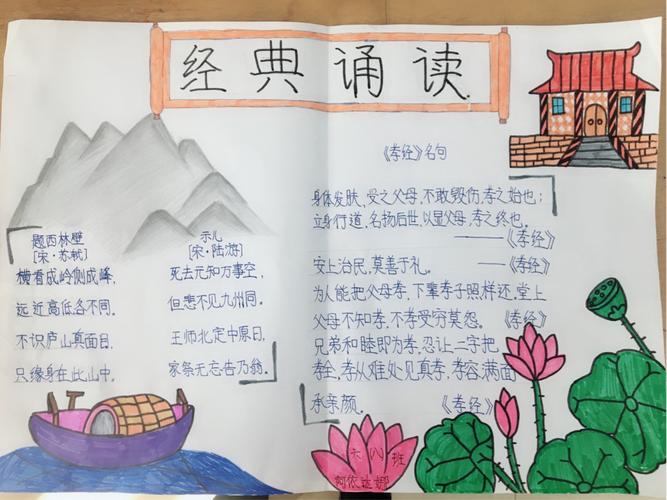 经典诵读
《孝经》名句
身体发肤,受之父母,不敢毁伤,孝之始也;
立身行道,名扬后世,以显父母,孝之终也。
——《孝经》
安上治民,莫善于礼。——《孝经》
为人能把父母孝,下辈孝子照样还,堂上
父母不知孝,不孝受穷莫怨。《孝经》
兄弟和睦即为孝,忍让二字把
孝全,孝从难处见真孝,孝容满面
承亲颜。《孝经》
题西林壁
[宋·苏轼]
横看成岭侧成峰,
远近高低各不同。
不识庐山真面目,
只缘身在此山中。
示儿
[宋·陆游]
死去元知万事空,
但悲不见九州同。
王师北定中原日,
家祭无忘告乃翁。
六八班
阿依达娜